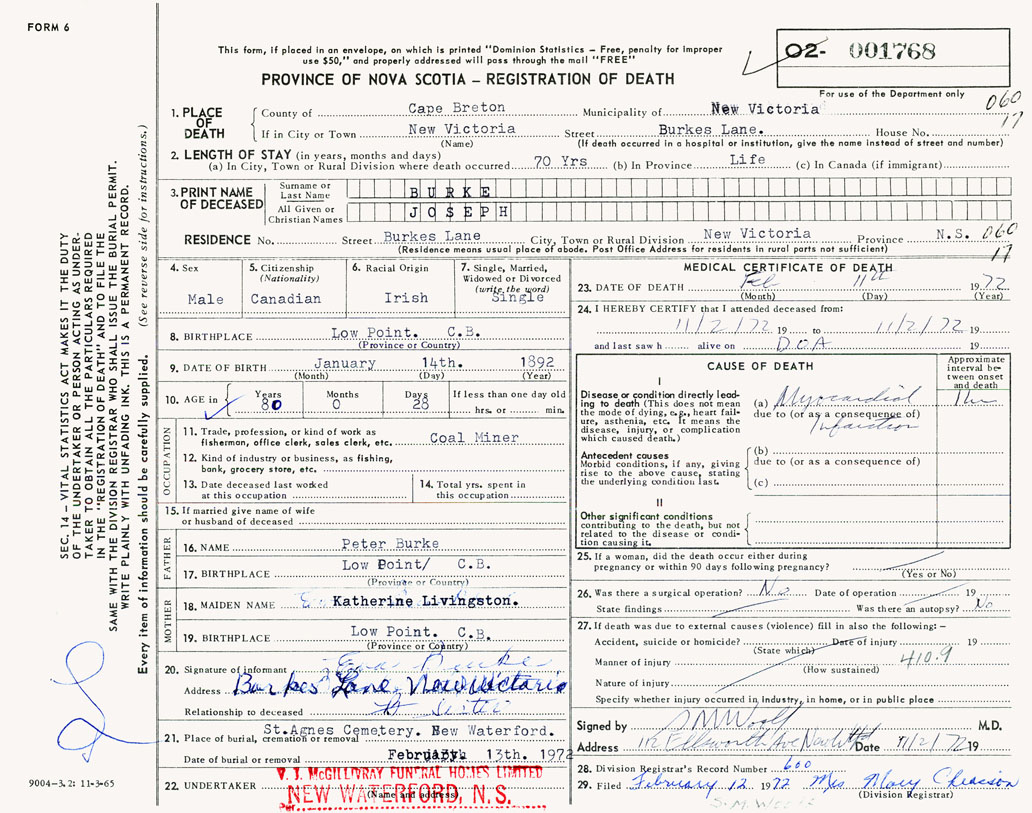 FORM 6
This form, if placed in an envelope, on which is printed "Dominion Statistics – Free, penalty for improper
use $50," and properly addressed will pass through the mail "FREE"
02- 001768
PROVINCE OF NOVA SCOTIA – REGISTRATION OF DEATH
For use of the Department only
060
17
1. PLACE OF DEATH
County of Cape Breton Municipality of New Victoria
If in City or Town New Victoria Street Burkes Lane. House No.
(Name) (If death occurred in a hospital or institution, give the name instead of street and number)
2. LENGTH OF STAY (in years, months and days)
(a) In City, Town or Rural Division where death occurred 70 Yrs (b) In Province Life (c) In Canada (if immigrant)
3. PRINT NAME OF DECEASED
Surname or Last Name BURKE
All Given or Christian Names JOSEPH
RESIDENCE No. Street Burkes Lane City, Town or Rural Division New Victoria Province N.S. 060
(Residence means usual place of abode. Post Office Address for residents in rural parts not sufficient) 17
4. Sex
Male
5. Citizenship
(Nationality)
Canadian
6. Racial Origin
Irish
7. Single, Married,
Widowed or Divorced
(write the word)
Single
8. BIRTHPLACE Low Point. C.B.
(Province or Country)
9. DATE OF BIRTH January 14th. 1892
(Month) (Day) (Year)
10. AGE in
Years Months Days If less than one day old
80 0 28 hrs. or min.
OCCUPATION
11. Trade, profession, or kind of work as
fisherman, office clerk, sales clerk, etc. Coal Miner
12. Kind of industry or business, as fishing,
bank, grocery store, etc.
13. Date deceased last worked
at this occupation
14. Total yrs. spent in
this occupation
15. If married give name of wife
or husband of deceased
FATHER
16. NAME Peter Burke
17. BIRTHPLACE Low Point/ C.B.
(Province or Country)
MOTHER
18. MAIDEN NAME Katherine Livingston.
19. BIRTHPLACE Low Point. C.B.
(Province or Country)
20. Signature of informant Eva Burke
Address Burkes Lane, New Victoria
Relationship to deceased Sister
21. Place of burial, cremation or removal St.Agnes Cemetery. New Waterford.
Date of burial or removal February 13th. 1972
22. UNDERTAKER
V. J. McGILLIVRAY FUNERAL HOMES LIMITED
NEW WATERFORD, N. S.
(Name and address)
MEDICAL CERTIFICATE OF DEATH
23. DATE OF DEATH Feb 11th 1972
(Month) (Day) (Year)
24. I HEREBY CERTIFY that I attended deceased from:
11/2/72 19 to 11/2/72 19
and last saw h alive on D.O.A 19
CAUSE OF DEATH
Approximate
interval be-
tween onset
and death
I
Disease or condition directly lead-
ing to death (This does not mean
the mode of dying, e.g., heart fail-
ure, asthenia, etc. It means the
disease, injury, or complication
which caused death.)
(a) Myocardial
due to (or as a consequence of)
Infarction
Antecedent causes
Morbid conditions, if any, giving
rise to the above cause, stating
the underlying condition last.
(b)
due to (or as a consequence of)
(c)
II
Other significant conditions
contributing to the death, but not
related to the disease or condi-
tion causing it.
25. If a woman, did the death occur either during
pregnancy or within 90 days following pregnancy?
(Yes or No)
26. Was there a surgical operation? No Date of operation 19
State findings Was there an autopsy? No
27. If death was due to external causes (violence) fill in also the following: –
Accident, suicide or homicide? Date of injury 19
(State which)
Manner of injury 410.9
(How sustained)
Nature of injury
Specify whether injury occurred in industry, in home, or in public place
Signed by M.D.
Address 112 Ellsworth Ave Date 11/2/72 19
28. Division Registrar's Record Number 600
29. Filed February 12 1972 Mrs Mary
(Division Registrar)
SEC. 14 – VITAL STATISTICS ACT MAKES IT THE DUTY
OF THE UNDERTAKER OR PERSON ACTING AS UNDER-
TAKER TO OBTAIN ALL THE PARTICULARS REQUIRED
IN THE "REGISTRATION OF DEATH" AND TO FILE THE
SAME WITH THE DIVISION REGISTRAR WHO SHALL ISSUE THE BURIAL PERMIT.
WRITE PLAINLY WITH UNFADING INK. THIS IS A PERMANENT RECORD.
Every item of information should be carefully supplied. (See reverse side for instructions.)
9004-3.2: 11-3-65